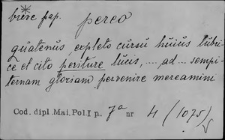 * bière pap. pereo
qualenus expleto cursu huius lubri-
ce et cito periture lucis, .... ad... sempi-
ternam gloriam pervenire mereamini
Cod. dipl. Mai. Pol. I p. 7a nr 4 (1075)